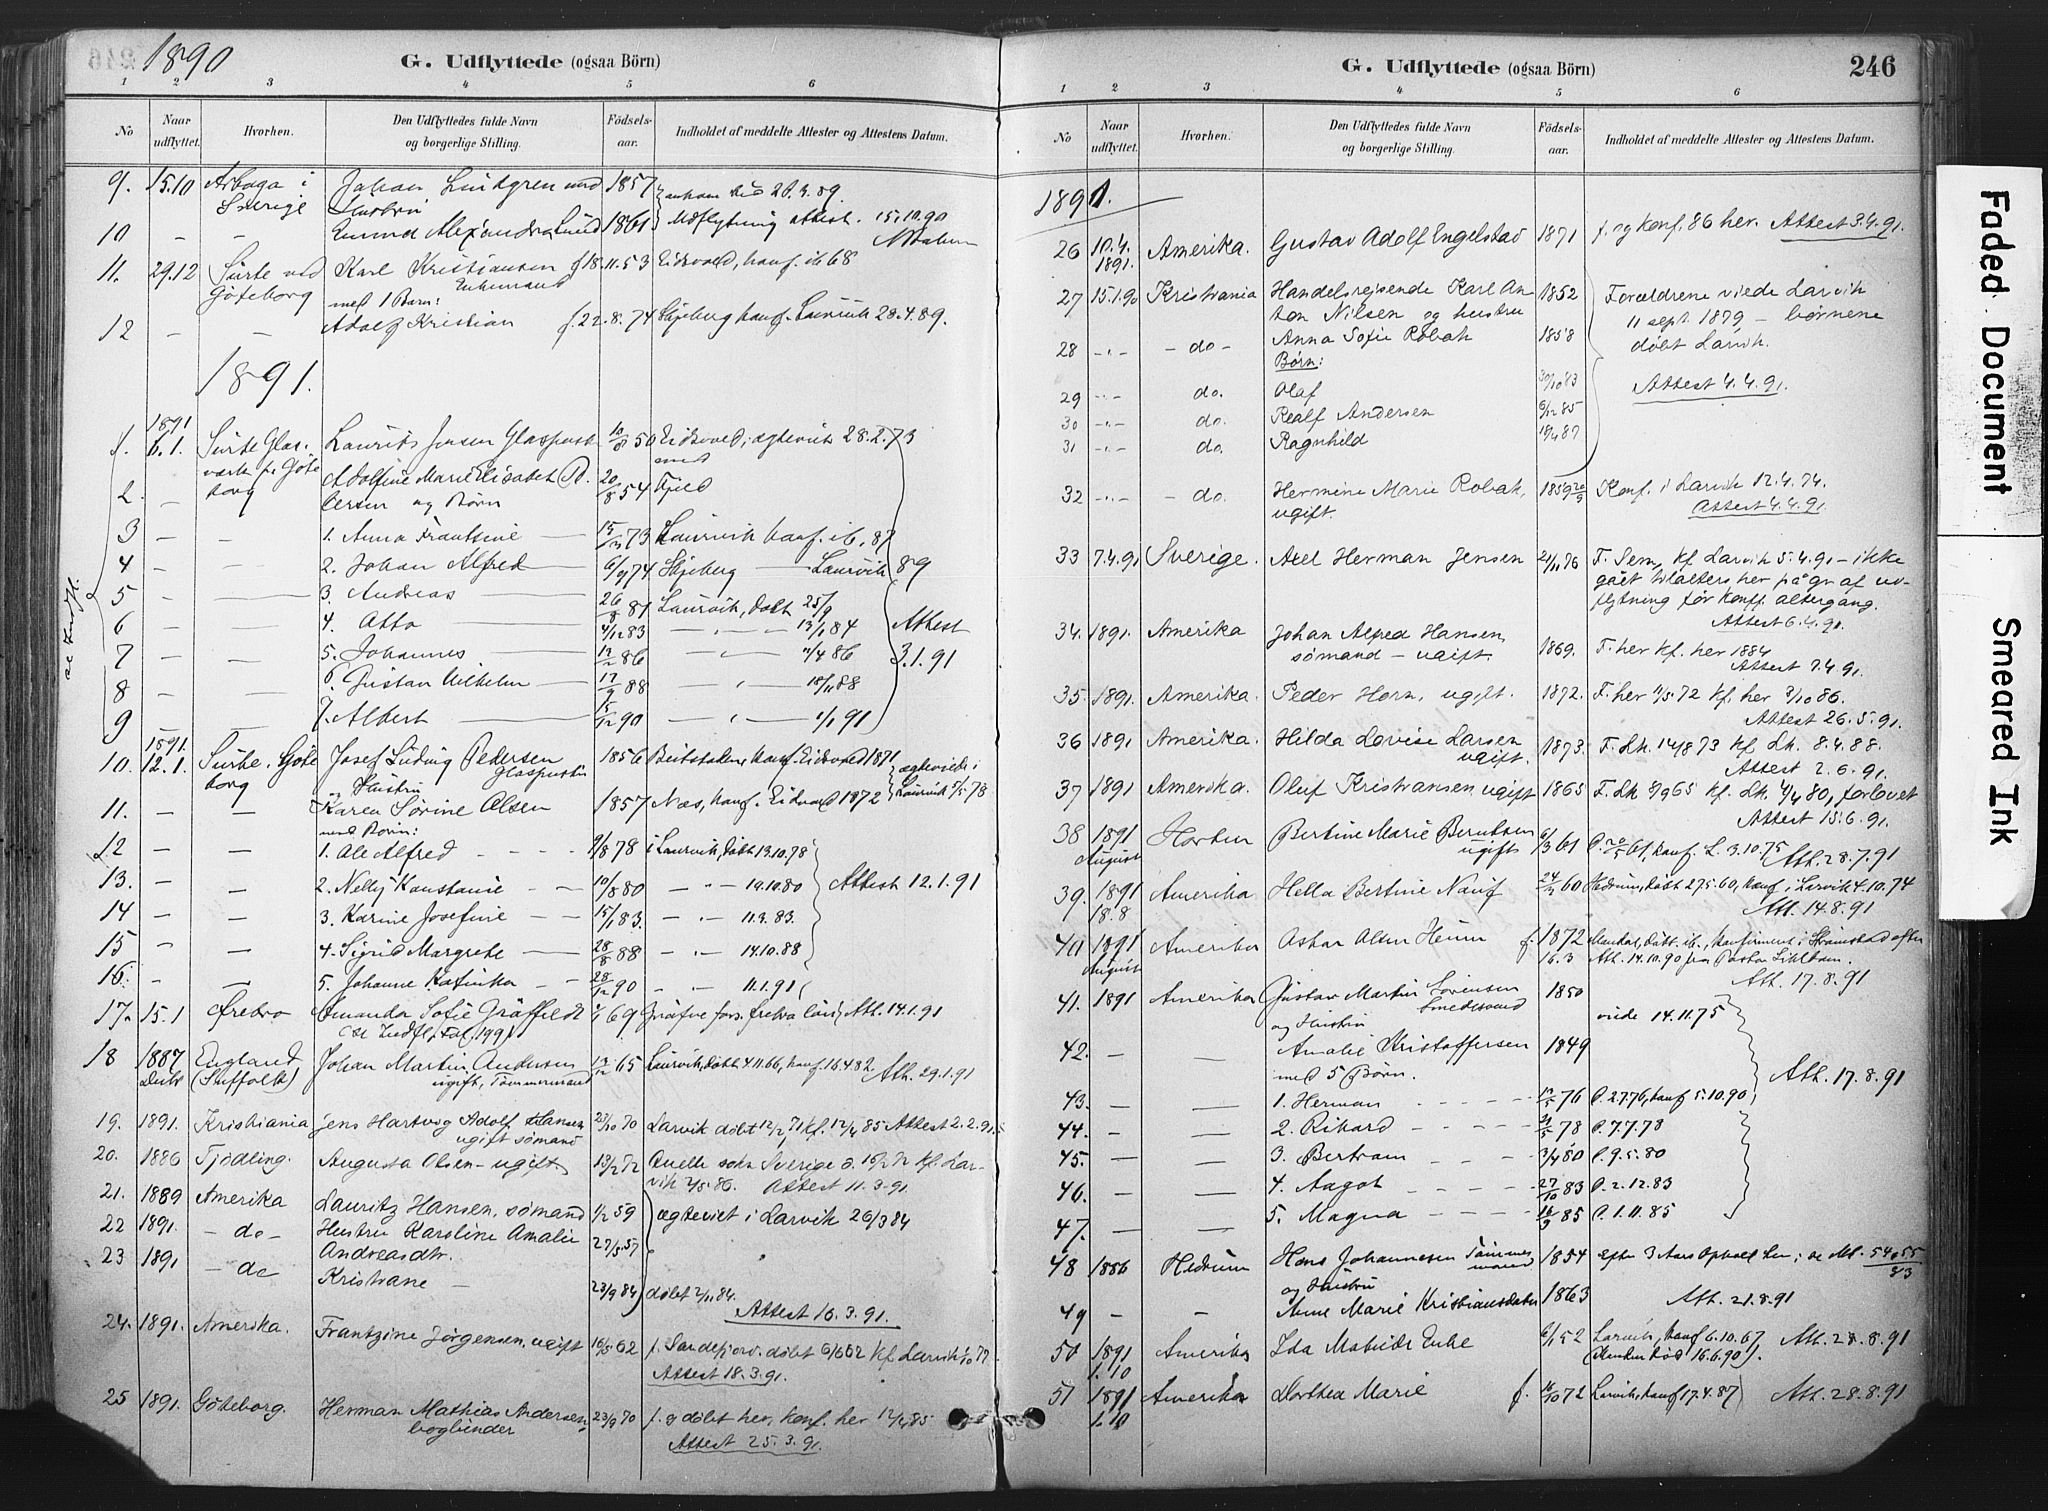 1890
G. Udflyttede (ogsaa Börn)
1 2 3 4 5 6
No
Naar udflyttet.
Hvorhen.
Den Udflyttedes fulde Navn og borgerlige Stilling.
Födsels-aar.
Indholdet af meddelte Attester og Attestens Datum.
9. 15.10 Arboga i Johan Lindgren med 1857
Sverige Hustru
10 - - Emma Alexandra Lund 1861 Udflytning attest. 15.10.90
11. 29.12 Surte ved Karl Kristiansen f 18.11.53 Eidsvold, konf. ib 68
Göteborg Enkemand
med 1 Barn:
12 - - Adolf Kristian f. 22.8.74 Skjeberg konf. Laurvik 28.4.89.
1891.
1891
1. 6.1. Surte Glas- Laurits Jensen Glaspust 10/8 50 Eidsvold, ægteviet 28.2.73
værk pr Göte med
2. - borg Adolfine Marie Elisabet 20/8 54 Fjeld
og Børn
3 - - 1. Anna Frantsine 15/12 73 Laurvik konf. ib. 87
4 - - 2. Johan Alfred 6/9 74 Skjeberg — Laurvik 89
5 - - 3. Andreas 26/8 81 Laurvik, døbt 25/9
6 - - 4. Otto 4/12 83 — " — 13/1 84 Attest
7 - - 5. Johannes 12/2 86 — " — 11/4 86 3.1.91
8 - - 6. Gustav Vilhelm 17/9 88 — " — 18/11 88
9 - - 7. Albert 15/12 90 — " — 1/1 91
1891.
10. 12.1. Surte, Göte Josef Ludvig Pedersen 1856 Beitstaden konf. Eidsvold 1871
borg Glaspuster ægteviede i
og Hustru
11. - - Karen Sørine Olsen 1857 Næs, konf. Eidsvold 1872 Laurvik 5/5 78
med Børn:
12 - - 1. Ole Alfred 9/8 78 i Laurvik, døbt 13.10.78
13. - - 2. Nelly Konstanse 10/8 80 - " - 19.10.80 Attest 12.1.91
14 - - 3. Karine Josefine 15/1 83. - " - 11.3.83.
15 - - 4. Sigrid Margrete 28/8 88 - " - 14.10.88
16. - - 5. Johanne Katinka 28/12 90 - " - 11.1.91
17. 15.1 Ørebro Amanda Sofie Gräffeldt 69 Gräfve fors. Ørebro län Att. 14.1.91
18 1887 England Johan Martin Andersen 13/12 65 Laurvik, døbt 4.11.66, konf. 16.4.82.
Decbr (Suffolk) ugift, Tømmermand Att. 29.1.91
19. 1891. Kristiania Jens Hartvig Adolf Hansen 23/10 70 Larvik døbt 12/2 71 kf. 12/4 85 Attest 2.2.91.
ugift sømand
20. 1886 Tjödling. Augusta Olsen - ugift 13/2 72 Quelle sokn Sverige d. 15/2 72 kf. Lar-
vik 2/5 86. Attest 11.3.91.
21. 1889 Amerika Lauritz Hansen, sømand 1/2 59 ægteviet i Larvik 26/3 84
22 1891. - do - Hustru Karoline Amalie 27/5 57
Andreasdtr.
23 1891 - do Kristiane - 23/9 84 døbt 2/11 84.
Attest 16.3.91.
24. 1891. Amerika. Frantzine Jørgensen, ugift 16/5 62 f. Sandefjord. døbt 6/6 62 kf. Larvik
Attest 18.3.91.
25 1891. Göteborg. Herman Mathias Andersen, 23/9 70 f. og døbt her, konf. her 12/4 85
bogbinder Attest 25.3.91.
G. Udflyttede (ogsaa Börn)
246
1 2 3 4 5 6
No
Naar udflyttet.
Hvorhen.
Den Udflyttedes fulde Navn og borgerlige Stilling.
Födsels-aar.
Indholdet af meddelte Attester og Attestens Datum.
1891.
26 10.4. 1891. Amerika. Gustav Adolf Engelstad 1871 f. og konf. 86 her. Attest 3.4.91.
27 15.1.90 Kristiania Handelsrejsende Karl An- 1852 Forældrene viede Larvik
ton Nilsen og hustru 11 sept. 1879 - børnene
28 -"- - do - Anna Sofie Robak 1858 døbt Larvik.
Børn:
29 -"- do. Olaf 30/10 83 Attest 4.4.91.
30 -"- do. Realf Andersen 6/12 85
31 -"- do. Ragnhild 19/4 87
32 -"- - do. Hermine Marie Robak, 1859 20/9 Konf. i Larvik 12.4.74.
ugift. Attest 4.4.91.
33 7.4.91 Sverige. Axel Herman Jensen 21/11 76 F. Sem, kf Larvik 5.4.91 - ikke
gået til alters her på gr. af ud-
flytning før konf. altergang.
Attest 6.4.91.
34. 1891. Amerika Johan Alfred Hansen,
sømand - ugift. 1869. F. her kf. her 1884
Attest 7.4.91.
35. 1891. Amerika Peder Horn, ugift. 1872. F. her 11/5 72 kf. her 3/10 86.
Attest 26.5.91.
36 1891 Amerika. Hilda Lovise Larsen 1873. F. Lk. 14/8 73 kf Lk. 8.4.88.
ugift. Attest 2.6.91.
37 1891 Amerika. Oluf Kristiansen, ugift 1865 F. Lk 8/9 65 kf. Lk. 4/4 80, forlovet
Attest 15.6.91.
38 1891 Horten Bertine Marie Berntsen 6/3 61 D. 20/5 61, konf. L. 3.10.75
August ugift Att. 28.7.91
39. 1891 Amerika Hella Bertine Nauf 24/2 60 Hedrum, døbt 27.5.60, konf. i Larvik 4.10.74
18.8 Att. 14.8.91
40 1891 Amerika Oskar Olsen Heum f. 1872 Mandal, døbt ib., Konfirmeret i Strømstad efter
August 16.3 Att. 14.10.90 fra Pastor
Att. 17.8.91
41. 1891 Amerika Gustav Martin Sørensen 1850
Smedsvend viede 14.11.75
og Hustru
42. - - Amalie Kristoffersen 1849
med 5 Børn. Att. 17.8.91
43. - - 1. Herman 12/5 76 D. 2.7.76, konf 5.10.90
44. - - 2. Rikard 21/5 78 D. 7.7.78
45. - - 3. Bertram 3/4 80 D. 9.5.80
46. - - 4. Aagot 27/10 83 D. 2.12.83
47. - - 5. Magna 16/9 85 D. 1.11.85
48 1886 Hedrum Hans Johannesen Tømmer- 1854 efter 3 Aars Ophold her; se
mand
og Hustru
49 - - Anne Marie Kristiansdatter 1863 Att. 21.8.91
50 1891 Amerika Ida Matilde Enke 6/1 52 Larvik, konf 6.10.67 Att. 28.8.91
1.10 (Manden død 16.6.90).
51 1891 Amerika Dorthea Marie f. 16/10 72 Larvik, konf 17.4.87 Att. 28.8.91
1.10
Faded Document
Smeared Ink